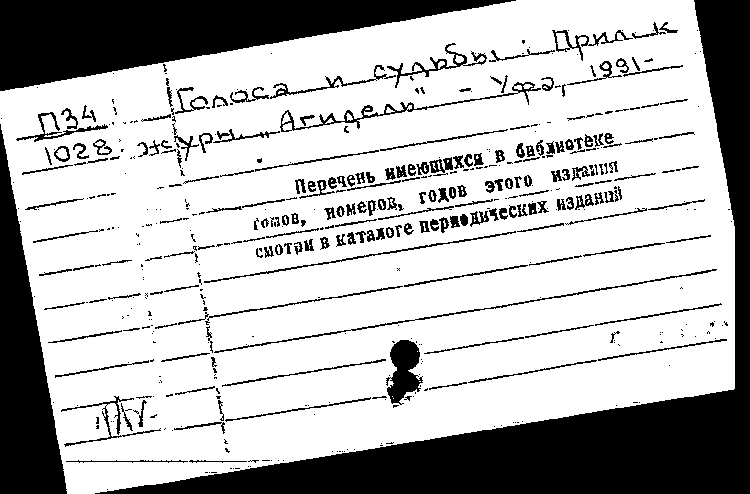 П34 Голоса и судьбы : Прил. к
1028 журн. „Агидель“ - Уфа, 1991-
Перечень имеющихся в библиотеке
томов, номеров, годов этого издания
смотри в каталоге периодических изданий